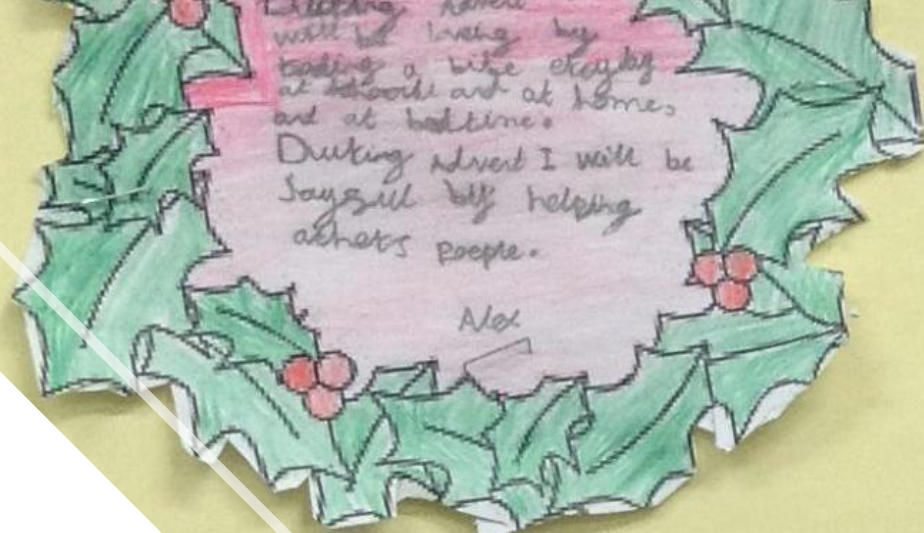 Duitking Advert
will be loveing by
beding a bibe erayday
at schoole and at home,
and at bedtime.
Duitking Advert I will be
Jaygull by helping
athers poeple.
Alex